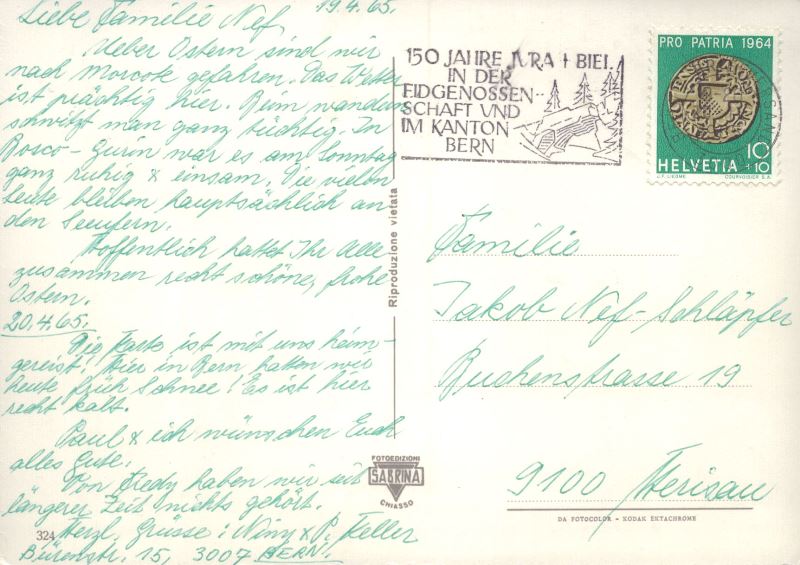 19.4.65.
Liebe Familie Nef
Ueber Ostern sind wir
nach Morcote gefahren. Das Wetter
ist prächtig hier. Beim wandern
schwitzt man ganz tüchtig. In
Bosco-Gurin war es am Sonntag
ganz ruhig & einsam. Die vielen
Leute bleiben hauptsächlich an
den Seeufern.
Hoffentlich hattet Ihr Alle
zusammen recht schöne, frohe
Ostern.
20.4.65.
Die Karte ist mit uns heim-
gereist! Hier in Bern hatten wir
heute früh Schnee! Es ist hier
recht kalt.
Paul & ich wünschen Euch
alles Gute.
Von Fredy haben wir seit
längerer Zeit nichts gehört.
Herzl. Grüsse: Niny & P. Feller
Bürenstr. 15, 3007 BERN.
324
Riproduzione vietata
FOTOEDIZIONI
SABRINA
CHIASSO
150 JAHRE JURA + BIEL
IN DER
EIDGENOSSEN-
SCHAFT UND
IM KANTON
BERN
PRO PATRIA 1964
10
+10
HELVETIA
COURVOISIER S.A.
Familie
Jakob Nef-Schläpfer
Buchenstrasse 19
9100 Herisau
DA FOTOCOLOR - KODAK EKTACHROME